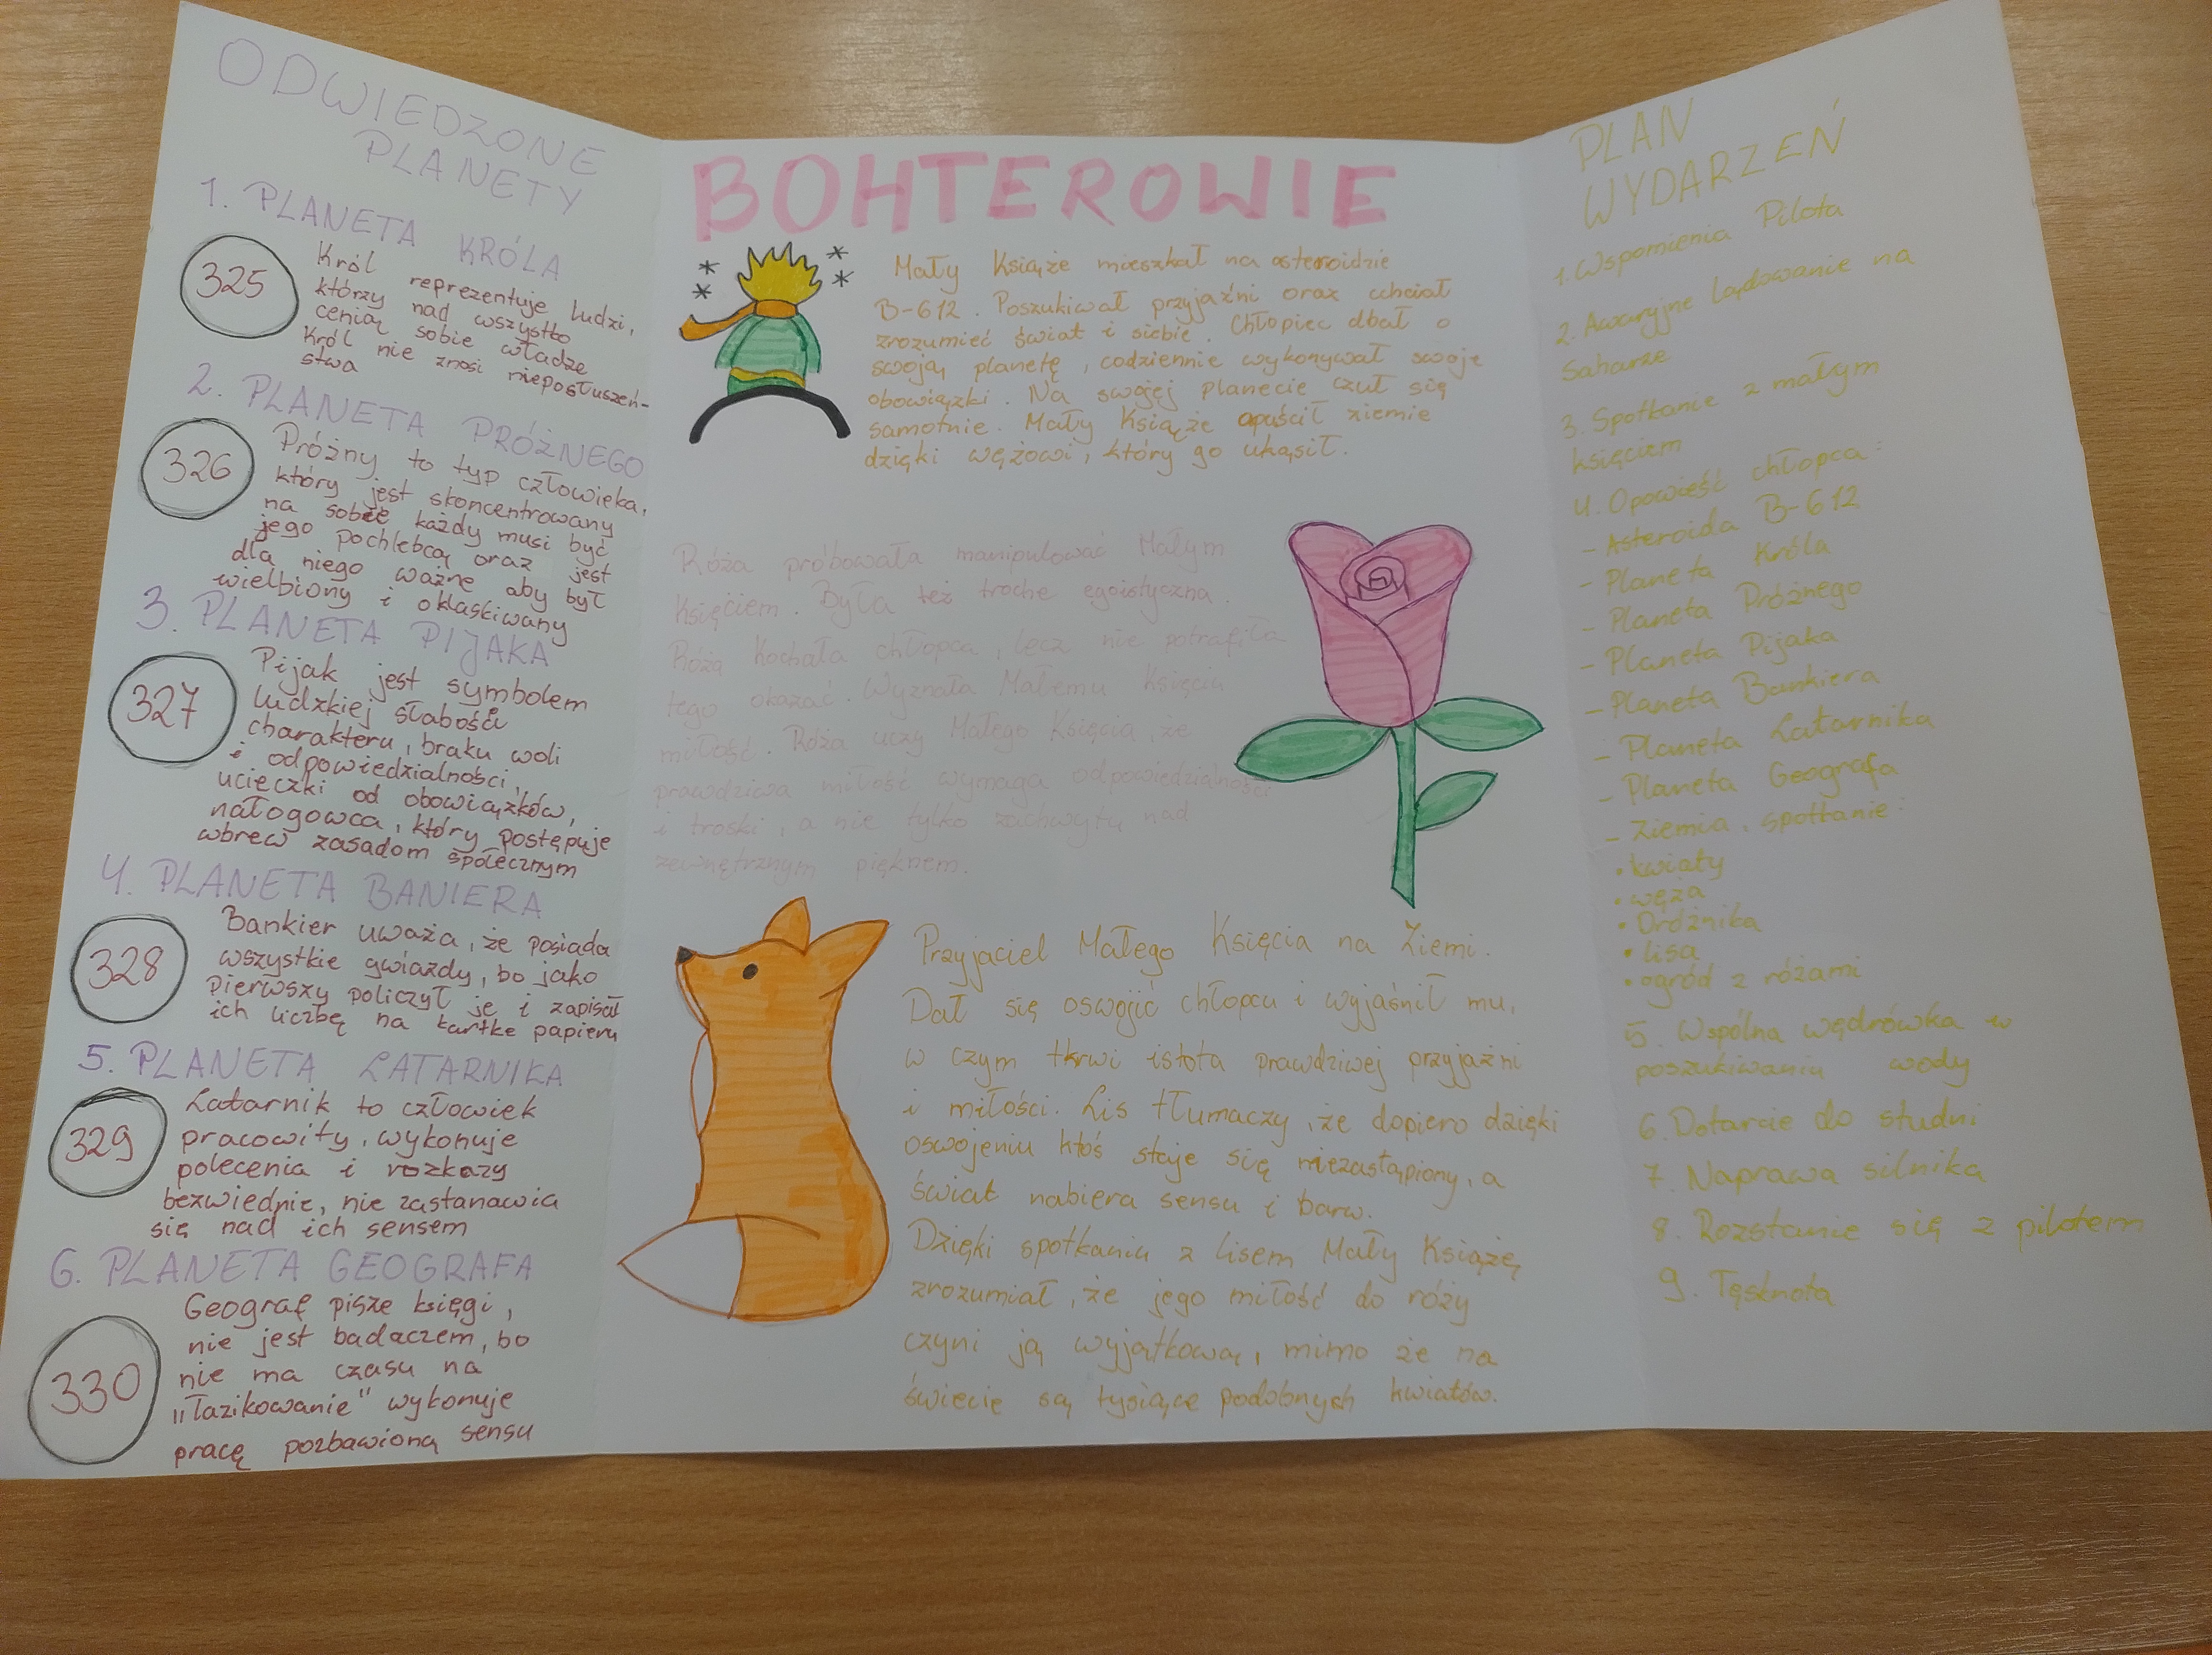 ODWIEDZONE
PLANETY
1. PLANETA KRÓLA
325
Król reprezentuje ludzi,
którzy nad wszystko
cenią sobie władze
Król nie znosi nieposłuszeń-
stwa
2. PLANETA PRÓŻNEGO
326
Próżny to typ człowieka,
który jest skoncentrowany
na sobie każdy musi być
jego pochlebcą oraz jest
dla niego ważne aby był
wielbiony i oklaskiwany
3. PLANETA PIJAKA
327
Pijak jest symbolem
ludzkiej słabości
charakteru, braku woli
i odpowiedzialności,
ucieczki od obowiązków,
nałogowca, który postępuje
wbrew zasadom społecznym
4. PLANETA BANIERA
328
Bankier uważa, że posiada
wszystkie gwiazdy, bo jako
pierwszy policzył je i zapisał
ich liczbę na kartke papieru
5. PLANETA LATARNIKA
329
Latarnik to człowiek
pracowity, wykonuje
polecenia i rozkazy
bezwiednie, nie zastanawia
się nad ich sensem
6. PLANETA GEOGRAFA
330
Geograf pisze księgi,
nie jest badaczem, bo
nie ma czasu na
"łazikowanie" wykonuje
pracę pozbawioną sensu
BOHTEROWIE
Mały Książe mieszkał na asteroidzie
B-612. Poszukiwał przyjaźni oraz uchciał
zrozumieć świat i siebie. Chłopiec dbał o
swoją planetę, codziennie wykonywał swoje
obowiązki. Na swojej planecie czuł się
samotnie. Mały Książe opuścił ziemie
dzięki wężowi, który go ukąsił.
Róża próbowała manipulować Małym
Księciem. Była też troche egoistyczna.
Róża kochała chłopca, lecz nie potrafiła
tego okazać. Wyznała Małemu Księciu
miłość. Róża uczy Małego Księcia, że
prawdziwa miłość wymaga odpowiedzialności
i troski, a nie tylko zachwytu nad
zewnętrznym pięknem.
Przyjaciel Małego Księcia na Ziemi.
Dał się oswojić chłopcu i wyjaśnił mu,
w czym tkrwi istota prawdziwej przyjaźni
i miłości. Lis tłumaczy, że dopiero dzięki
oswojeniu ktoś staje się niezastąpiony, a
świat nabiera sensu i barw.
Dzięki spotkaniu z lisem Mały Książę
zrozumiał, że jego miłość do róży
czyni ją wyjątkową, mimo że na
świecie są tysiące podobnych kwiatów.
PLAN
WYDARZEŃ
1. Wspomienia Pilota
2. Awaryjne lądowanie na
Saharze
3. Spotkanie z małym
księciem
4. Opowieść chłopca:
- Asteroida B-612
- Planeta Króla
- Planeta Próżnego
- Planeta Pijaka
- Planeta Bankiera
- Planeta Latarnika
- Planeta Geografa
- Ziemia, spotkanie:
• kwiaty
• węża
• Dróżnika
• lisa
• ogród z różami
5. Wspólna wędrówka w
poszukiwaniu wody
6. Dotarcie do studni
7. Naprawa silnika
8. Rozstanie się z pilotem
9. Tęsknota